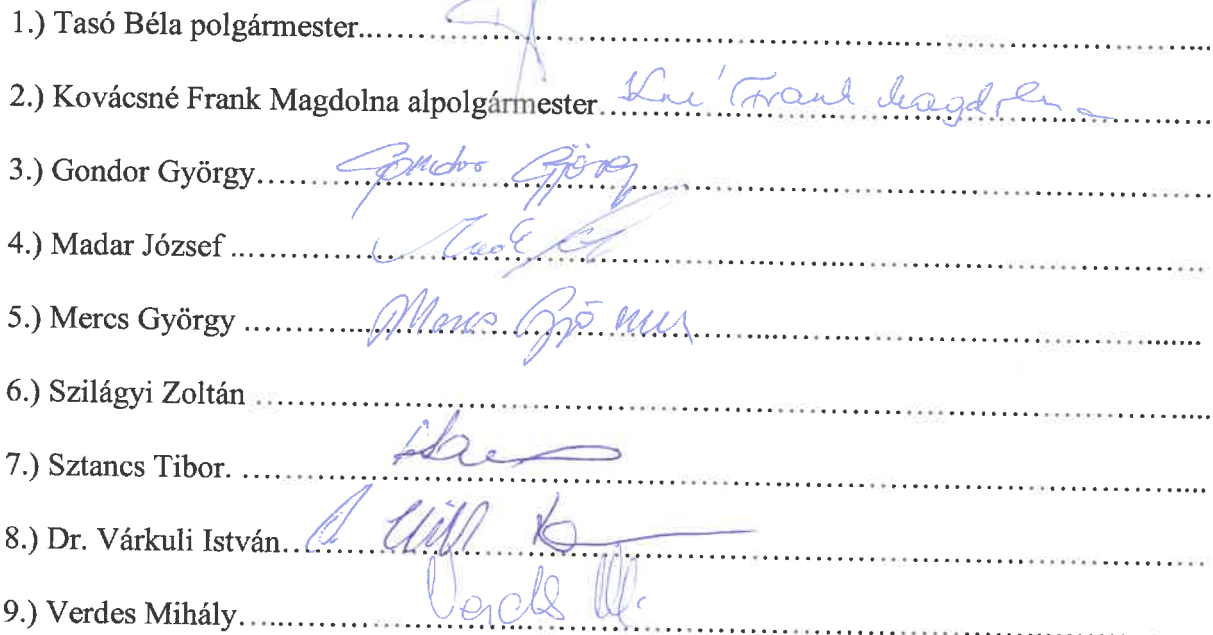 1.) Tasó Béla polgármester................................................
2.) Kovácsné Frank Magdolna alpolgármester Kné Frank Magdolna
3.) Gondor György Gondor György
4.) Madar József ................................................
5.) Mercs György Mercs György
6.) Szilágyi Zoltán ................................................
7.) Sztancs Tibor. ................................................
8.) Dr. Várkuli István................................................
9.) Verdes Mihály Verdes M.